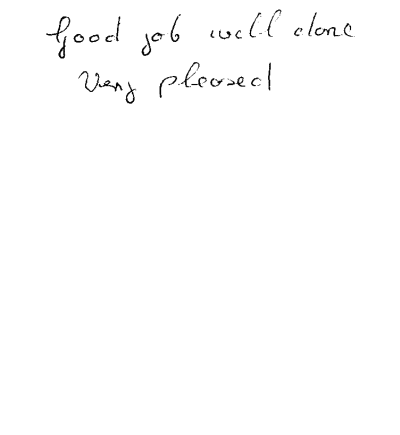 Good job well done
Very pleased